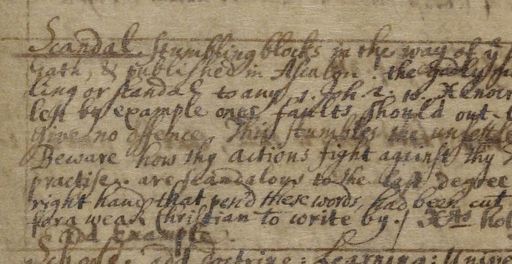 Scandal. stumbling blocks in the way of ye
Gath, & published in Askelon. the godly
ling or scandal to any. 1. Joh. 2. 10.
lest by example ones faults should out-
Give no offence. This stumbles the
Beware how thy actions fight against thy
practise. are scandalous to the last degree
right hand that pen'd these words had been cut
for a weak Christian to write by. Xts
bad Example.
Schools. and doctrine: Learning: Unive